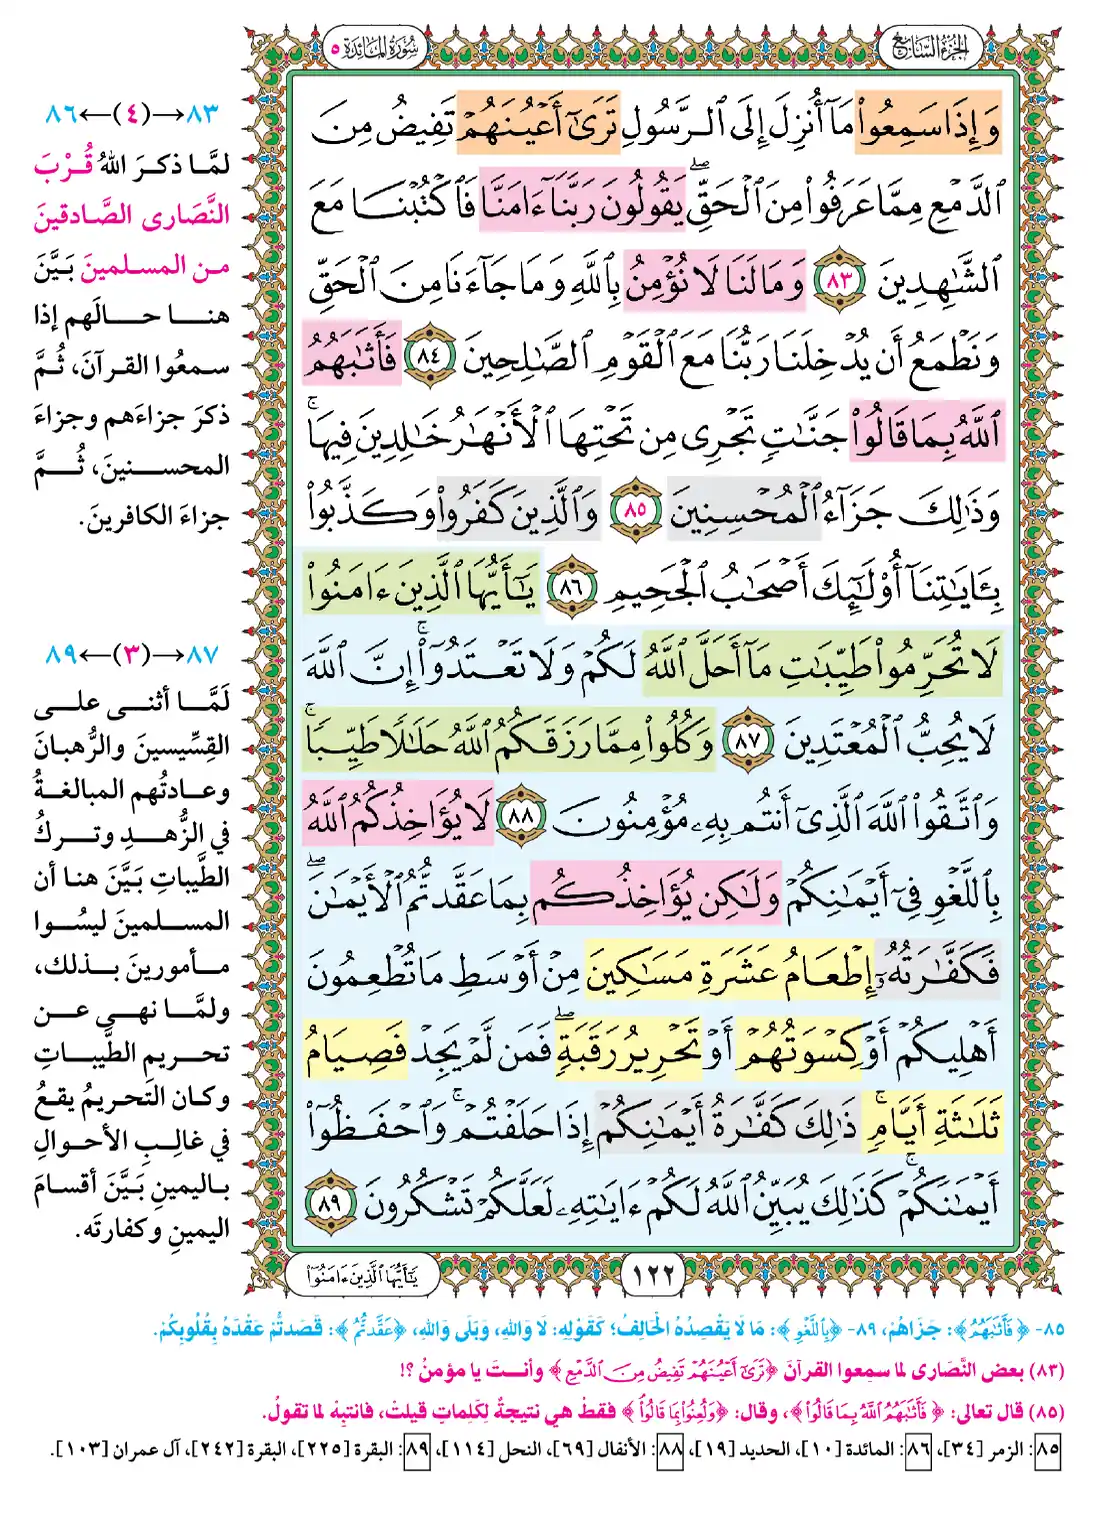 الجزء السابع
سورة المائدة ٥
وَإِذَا سَمِعُوا۟ مَآ أُنزِلَ إِلَى ٱلرَّسُولِ تَرَىٰٓ أَعْيُنَهُمْ تَفِيضُ مِنَ
ٱلدَّمْعِ مِمَّا عَرَفُوا۟ مِنَ ٱلْحَقِّ ۖ يَقُولُونَ رَبَّنَآ ءَامَنَّا فَٱكْتُبْنَا مَعَ
ٱلشَّـٰهِدِينَ ٨٣ وَمَا لَنَا لَا نُؤْمِنُ بِٱللَّهِ وَمَا جَآءَنَا مِنَ ٱلْحَقِّ
وَنَطْمَعُ أَن يُدْخِلَنَا رَبُّنَا مَعَ ٱلْقَوْمِ ٱلصَّـٰلِحِينَ ٨٤ فَأَثَـٰبَهُمُ
ٱللَّهُ بِمَا قَالُوا۟ جَنَّـٰتٍ تَجْرِى مِن تَحْتِهَا ٱلْأَنْهَـٰرُ خَـٰلِدِينَ فِيهَا ۚ
وَذَٰلِكَ جَزَآءُ ٱلْمُحْسِنِينَ ٨٥ وَٱلَّذِينَ كَفَرُوا۟ وَكَذَّبُوا۟
بِـَٔايَـٰتِنَآ أُو۟لَـٰٓئِكَ أَصْحَـٰبُ ٱلْجَحِيمِ ٨٦ يَـٰٓأَيُّهَا ٱلَّذِينَ ءَامَنُوا۟
لَا تُحَرِّمُوا۟ طَيِّبَـٰتِ مَآ أَحَلَّ ٱللَّهُ لَكُمْ وَلَا تَعْتَدُوٓا۟ ۚ إِنَّ ٱللَّهَ
لَا يُحِبُّ ٱلْمُعْتَدِينَ ٨٧ وَكُلُوا۟ مِمَّا رَزَقَكُمُ ٱللَّهُ حَلَـٰلًا طَيِّبًا ۚ
وَٱتَّقُوا۟ ٱللَّهَ ٱلَّذِىٓ أَنتُم بِهِۦ مُؤْمِنُونَ ٨٨ لَا يُؤَاخِذُكُمُ ٱللَّهُ
بِٱللَّغْوِ فِىٓ أَيْمَـٰنِكُمْ وَلَـٰكِن يُؤَاخِذُكُم بِمَا عَقَّدتُّمُ ٱلْأَيْمَـٰنَ ۖ
فَكَفَّـٰرَتُهُۥٓ إِطْعَامُ عَشَرَةِ مَسَـٰكِينَ مِنْ أَوْسَطِ مَا تُطْعِمُونَ
أَهْلِيكُمْ أَوْ كِسْوَتُهُمْ أَوْ تَحْرِيرُ رَقَبَةٍ ۖ فَمَن لَّمْ يَجِدْ فَصِيَامُ
ثَلَـٰثَةِ أَيَّامٍ ۚ ذَٰلِكَ كَفَّـٰرَةُ أَيْمَـٰنِكُمْ إِذَا حَلَفْتُمْ ۚ وَٱحْفَظُوٓا۟
أَيْمَـٰنَكُمْ ۚ كَذَٰلِكَ يُبَيِّنُ ٱللَّهُ لَكُمْ ءَايَـٰتِهِۦ لَعَلَّكُمْ تَشْكُرُونَ ٨٩
١٢٢
يَـٰٓأَيُّهَا ٱلَّذِينَ ءَامَنُوٓا۟
٨٣→(٤)←٨٦
لمَّا ذكرَ اللهُ قُرْبَ
النَّصَارى الصَّادقينَ
من المسلمينَ بَيَّنَ
هنا حالَهم إذا
سمعُوا القرآنَ، ثُمَّ
ذكرَ جزاءَهم وجزاءَ
المحسنينَ، ثُمَّ
جزاءَ الكافرينَ.
٨٧→(٣)←٨٩
لَمَّا أثنى على
القِسِّيسينَ والرُّهبانَ
وعادتُهم المبالغةُ
في الزُّهدِ وتركُ
الطَّيباتِ بَيَّنَ هنا أن
المسلمينَ ليسُوا
مأمورينَ بذلك،
ولمَّا نهى عن
تحريمِ الطَّيباتِ
وكان التحريمُ يقعُ
في غالبِ الأحوالِ
باليمينِ بَيَّنَ أقسامَ
اليمينِ وكفارتَه.
٨٥- ﴿فَأَثَـٰبَهُمُ﴾: جَزَاهُمْ، ٨٩- ﴿بِٱللَّغْوِ﴾: مَا لَا يَقْصِدُهُ الْحَالِفُ؛ كَقَوْلِهِ: لَا وَاللهِ، وَبَلَى وَاللهِ، ﴿عَقَّدتُّمُ﴾: قَصَدتُّمْ عَقْدَهُ بِقُلُوبِكُمْ.
(٨٣) بعض النَّصَارى لما سمعوا القرآنَ ﴿تَرَىٰٓ أَعْيُنَهُمْ تَفِيضُ مِنَ ٱلدَّمْعِ﴾ وأنتَ يا مؤمنُ ؟!
(٨٥) قال تعالى: ﴿فَأَثَـٰبَهُمُ ٱللَّهُ بِمَا قَالُوا۟﴾، وقال: ﴿وَلُعِنُوا۟ بِمَا قَالُوا۟﴾ فقطْ هي نتيجةٌ لكلماتٍ قيلتْ، فانتبِهْ لما تقولُ.
٨٥: الزمر [٣٤]، ٨٦: المائدة [١٠]، الحديد [١٩]، ٨٨: الأنفال [٦٩]، النحل [١١٤]، ٨٩: البقرة [٢٢٥]، البقرة [٢٤٢]، آل عمران [١٠٣].